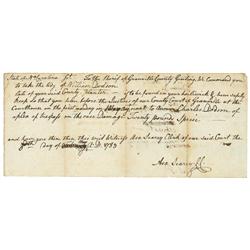 State of No Carolina Sct To the Sheriff of Granville County Greeting We Command you
to take the body of William Dodson
late of your said County Planter if to be found in your bailiwick & have safely
keep so that you have before the Justices of our County Court of Granville at the
Courthouse on the first monday of May next to answer Charles Dodson of
a plea of trespass on the case Damage Twenty pounds Specie
and have you then there this writ Witness Asa Searcy Clerk of our said Court the
Day of A.D. 1783
Asa Searcy CC